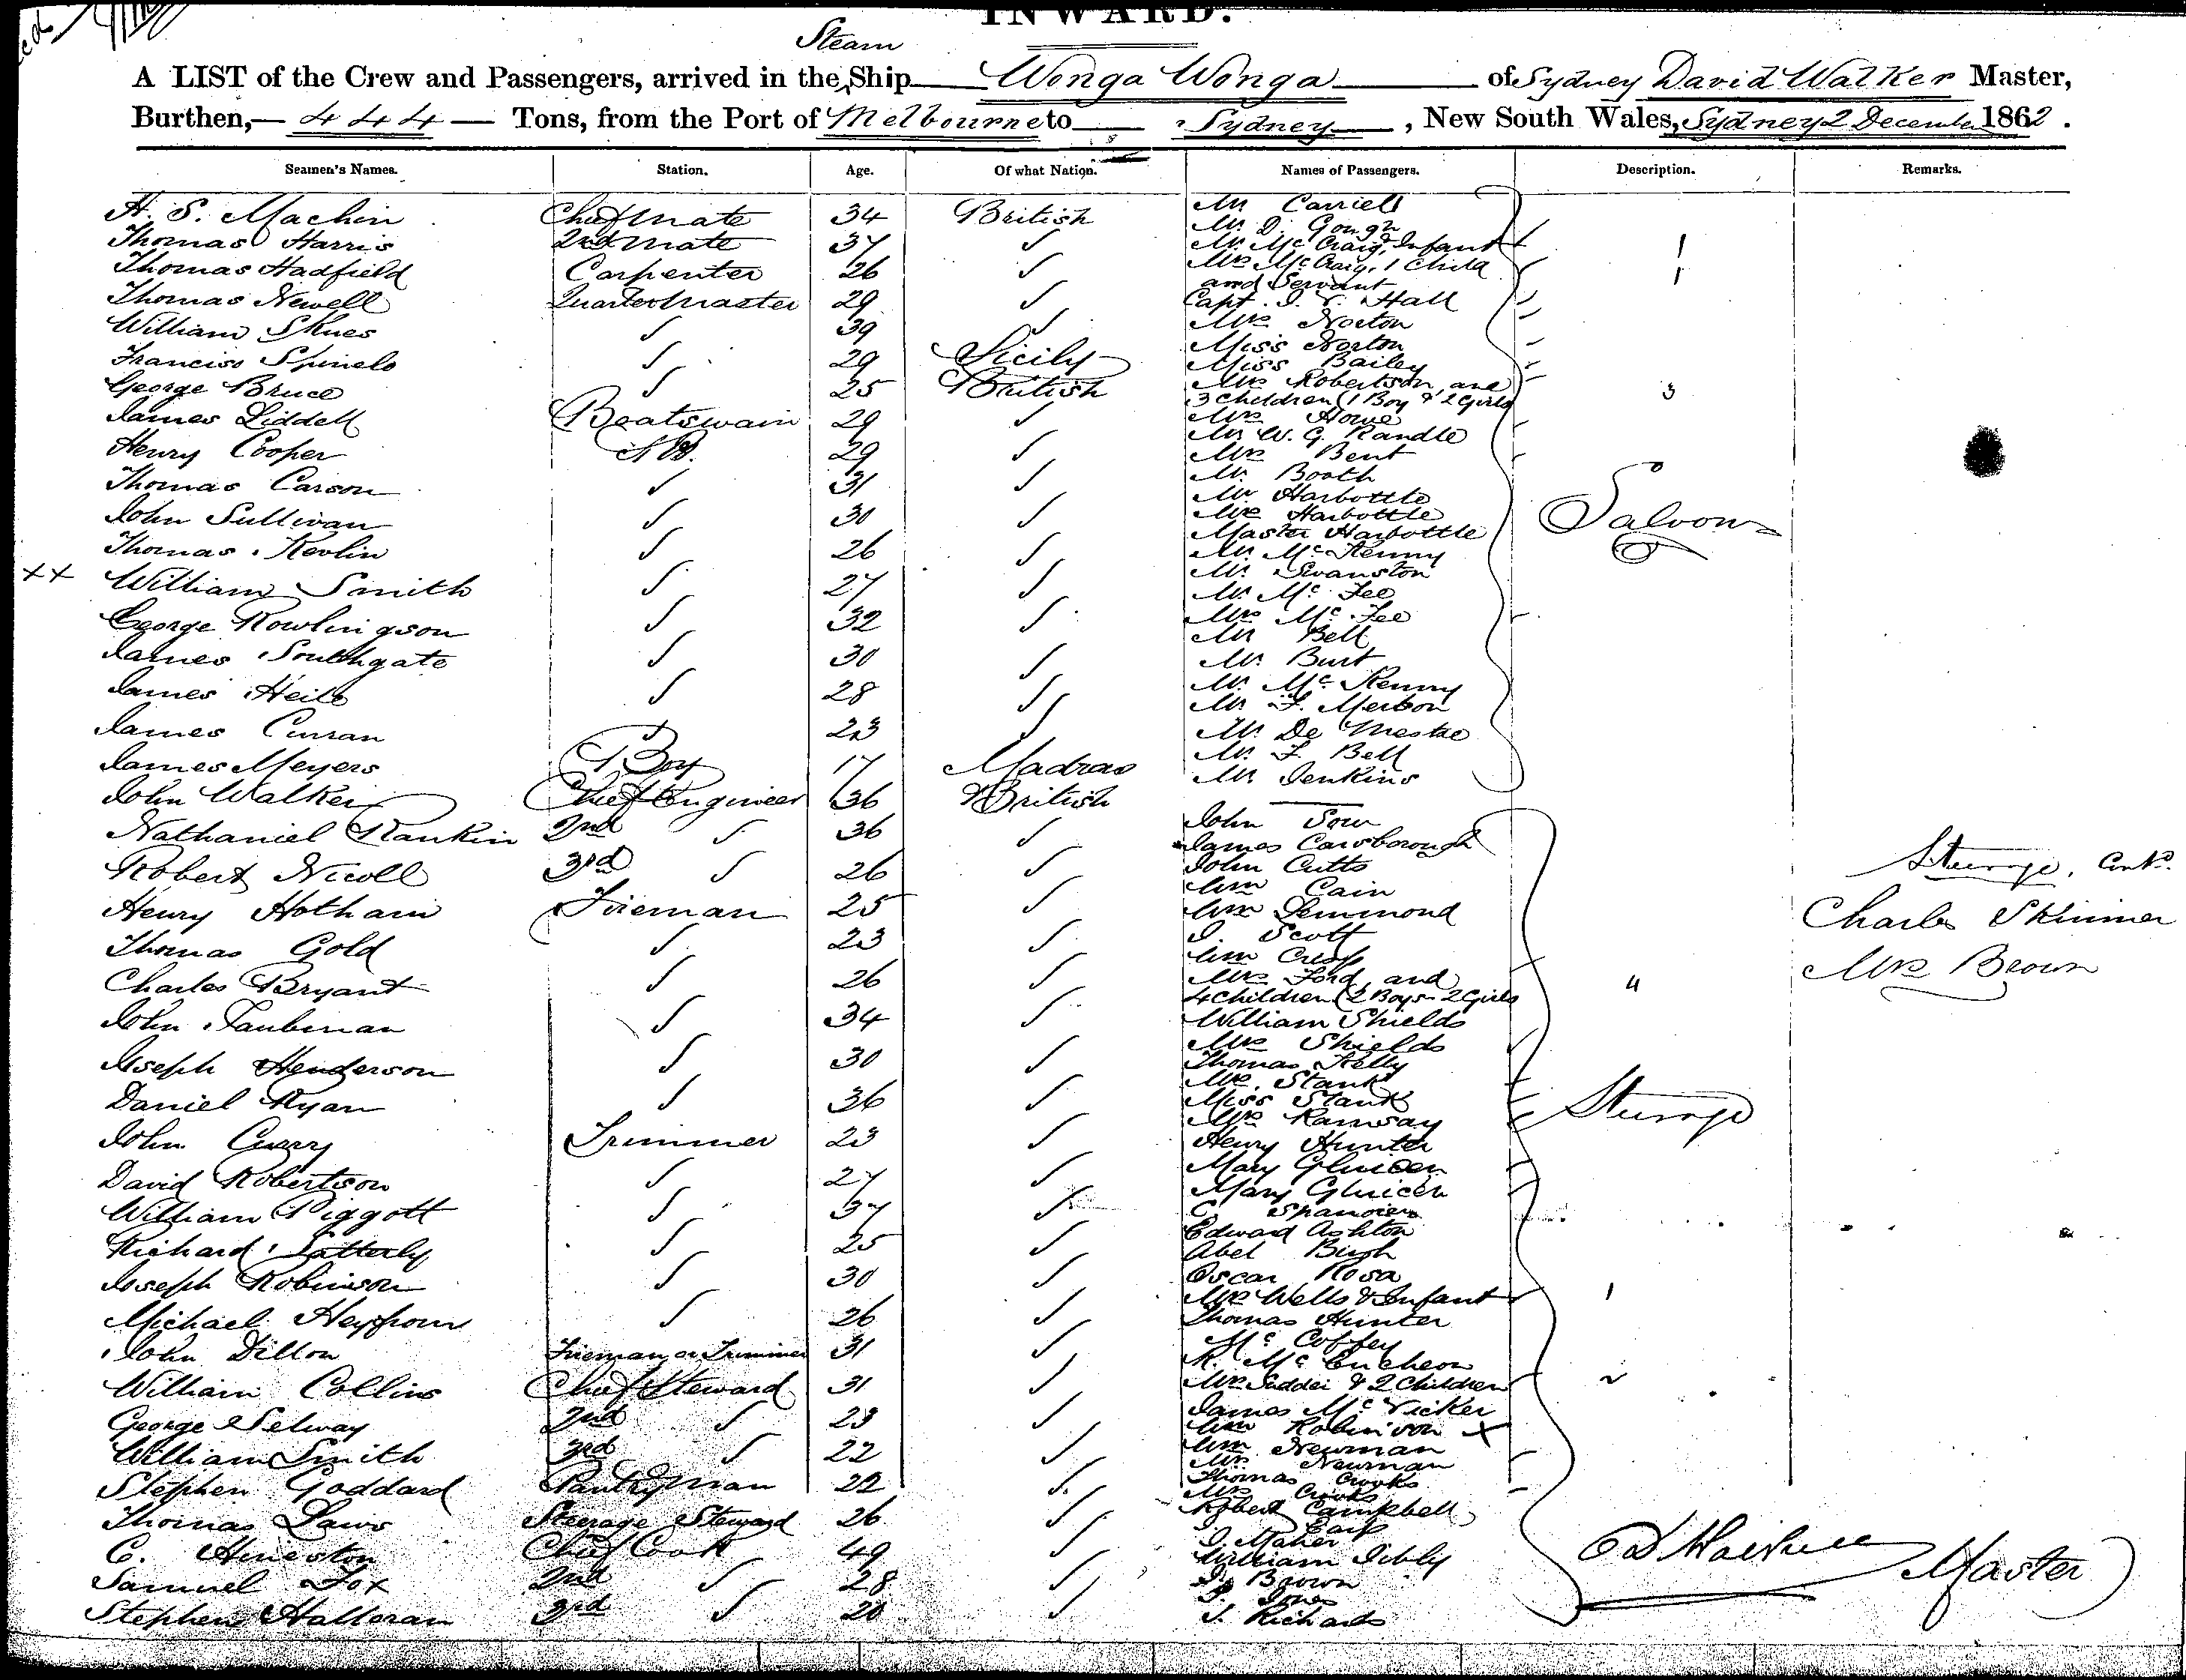 INWARD.
Steam
A LIST of the Crew and Passengers, arrived in the Ship Wonga Wonga of Sydney David Walker Master,
Burthen, 444 Tons, from the Port of Melbourne to Sydney, New South Wales, Sydney 2 December 1862.
Seamen's Names. Station. Age. Of what Nation. Names of Passengers. Description. Remarks.
H. S. Machin Chief Mate 34 British
Thomas Harris 2nd Mate 37 ✓
Thomas Hadfield Carpenter 26 ✓
Thomas Newell Quartermaster 29 ✓
William Skues ✓ 39 ✓
Francisco Spinelo ✓ 29 Sicily
George Bruce ✓ 25 British
James Liddell Boatswain 29 ✓
Henry Cooper A B. 29 ✓
Thomas Carson ✓ 31 ✓
John Sullivan ✓ 30 ✓
Thomas Kevlin ✓ 26 ✓
xx William Smith ✓ 27 ✓
George Rowlingson ✓ 32 ✓
James Southgate ✓ 30 ✓
James ✓ 28 ✓
James Curran ✓ 23 ✓
James Meyers Boy 17 Madras
John Walker Chief Engineer 36 British
Nathaniel Rankin 2nd ✓ 36 ✓
Robert Nicoll 3rd ✓ 26 ✓
Henry Hotham Fireman 25 ✓
Thomas Gold ✓ 23 ✓
Charles Bryant ✓ 26 ✓
John Taubman ✓ 34 ✓
Joseph Henderson ✓ 30 ✓
Daniel Ryan ✓ 36 ✓
John Curry Trimmer 23 ✓
David Robertson ✓ 27 ✓
William Piggott ✓ 37 ✓
Richard Satterly ✓ 25 ✓
Joseph Robinson ✓ 30 ✓
Michael ✓ 26 ✓
John Dillon Fireman or Trimmer 31 ✓
William Collins Chief Steward 31 ✓
George Selway 2nd ✓ 23 ✓
William Smith 3rd ✓ 22 ✓
Stephen Goddard Pantryman 22 ✓
Thomas Laws Steerage Steward 26 ✓
C. Chief Cook 49 ✓
Samuel Fox 2nd ✓ 28 ✓
Stephen Halloran 3rd ✓ 20 ✓
Mr Carriell
Mr D. Gough
Mr McCraig, Infant 1
Mrs McCraig, 1 Child 1
and Servant
Capt. Hall
Mrs Norton
Miss Norton
Miss Bailey
Mrs Robertson and
3 Children (1 Boy & 2 Girls 3
Mrs Howe
Mr W. G. Randle
Mrs Bent
Mr. Booth
Mr Harbottle
Mrs Harbottle
Master Harbottle
Mr. McKenny
Mr. Swanston
Mr McFee
Mrs McFee
Mr Bell
Mr. Burt
Mr. McKenny
Mr. F. Merton
Mr. De Mestre
Mr. F. Bell
Mr. Jenkins
Saloon
John
James Carsborough
John Cutts
Wm Cain
Wm Lemmond
J. Scott
Wm Crisp
Mrs Ford and
4 Children (2 Boys 2 Girls 4
William Shields
Mrs Shields
Thomas Kelly
Mrs. Stank
Miss Stank
Mrs Ramsay
Henry Hunter
Mary
Mary
C.
Edward Ashton
Abel Bush
Oscar Rosa
Mrs Wells & Infant 1
Thomas Hunter
Mc Coffey
R. McCucheon
Mrs & 2 Children 2
James McVicker
Wm Robinson x
Wm Newman
Mrs Newman
Thomas Crooks
Mrs Crooks
Robert Campbell
J. Maher
William
J. Brown
J. Jones
J. Richards
Steerage
Steerage, Contd.
Charles Skinner
Mrs Brown
D Walker Master